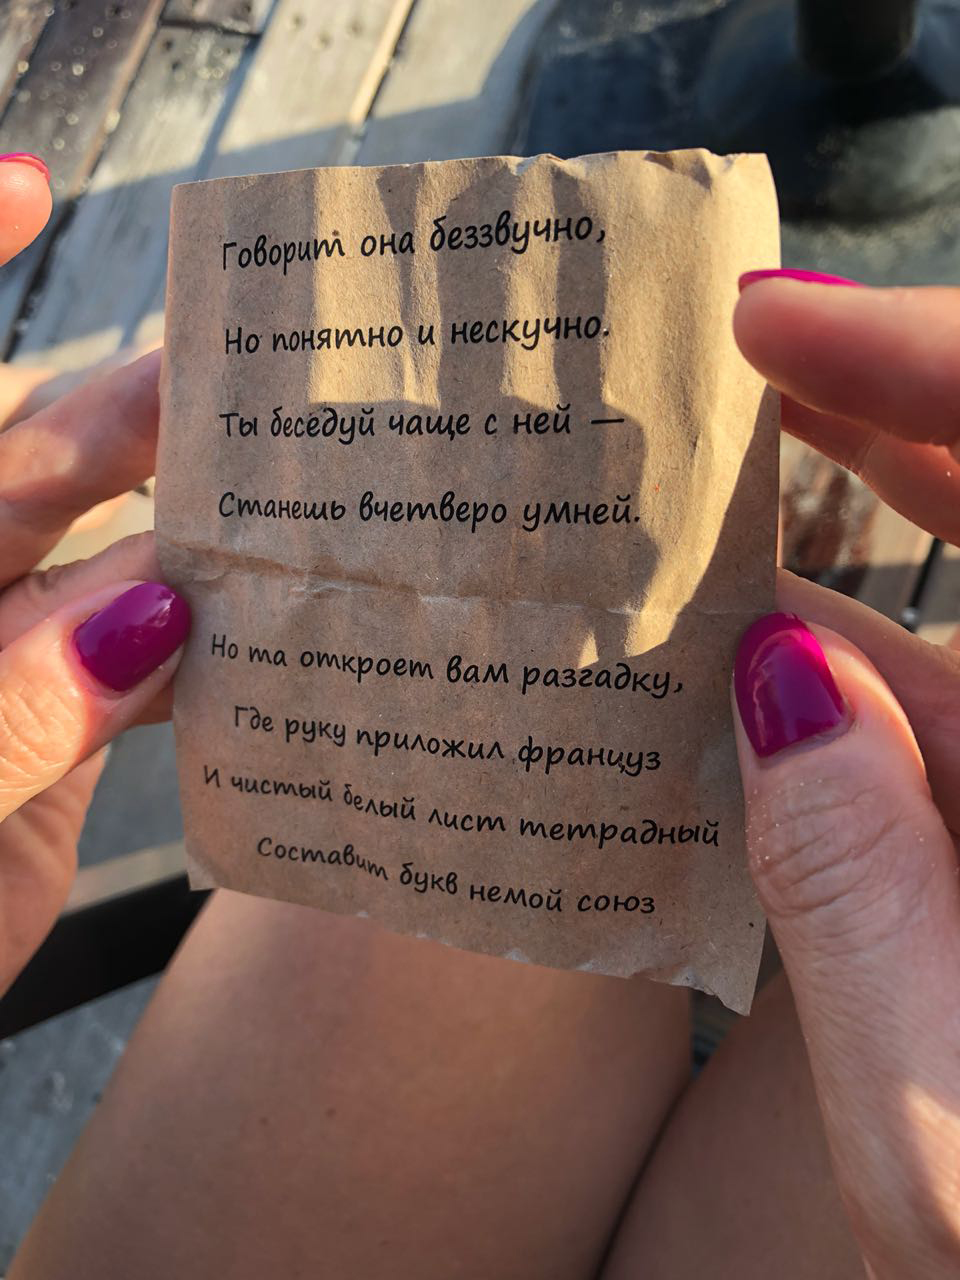 Говорит она беззвучно,
Но понятно и нескучно.
Ты беседуй чаще с ней —
Станешь вчетверо умней.
Но та откроет вам разгадку,
Где руку приложил француз
И чистый белый лист тетрадный
Составит букв немой союз